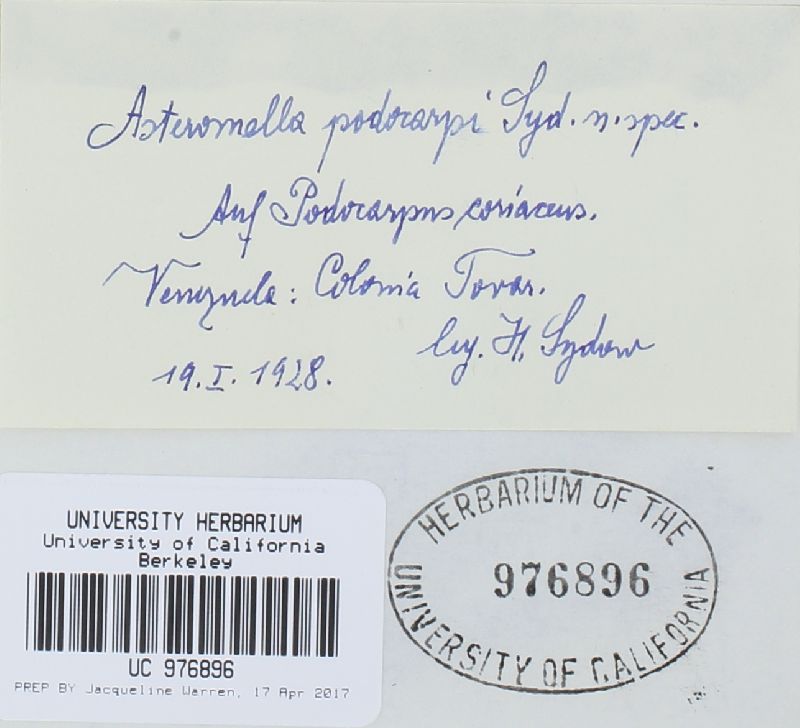 Asteromella podocarpi Syd. n. spec.
Auf Podocarpus coriaceus.
Venezuela: Colonia Tovar.
leg. H. Sydow
19. I. 1928.
UNIVERSITY HERBARIUM
University of California
Berkeley
UC 976896
PREP BY Jacqueline Warren, 17 Apr 2017
HERBARIUM OF THE
976896
UNIVERSITY OF CALIFORNIA